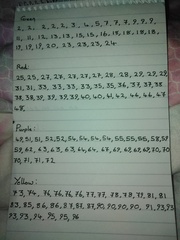 Green
2, 2, 2, 2, 2, 3, 4, 5, 7, 7, 7, 9, 9, 9,
11, 11, 12, 13, 13, 15, 15, 16, 18, 18, 18, 18,
19, 19, 19, 20, 23, 23, 23, 24
Red:
25, 25, 27, 27, 28, 27, 27, 28, 28, 29, 29, 29,
31, 31, 33, 33, 33, 33, 35, 35, 35, 36, 37, 37, 38
38, 38, 39, 39, 39, 39, 40, 40, 41, 42, 46, 46, 47
48,
Purple:
49, 51, 51, 52, 52, 54, 54, 54, 54, 55, 55, 56, 58, 59
59, 62, 63, 63, 63, 64, 64, 67, 69, 69, 69, 69, 70, 70
70, 71, 71, 72
Yellow:
73, 74, 76, 76, 76, 76, 77, 77, 78, 78, 79, 81, 81
83, 85, 86, 86, 87, 87, 87, 90, 90, 90, 90, 91, 93, 93
93, 93, 94, 95, 95, 96